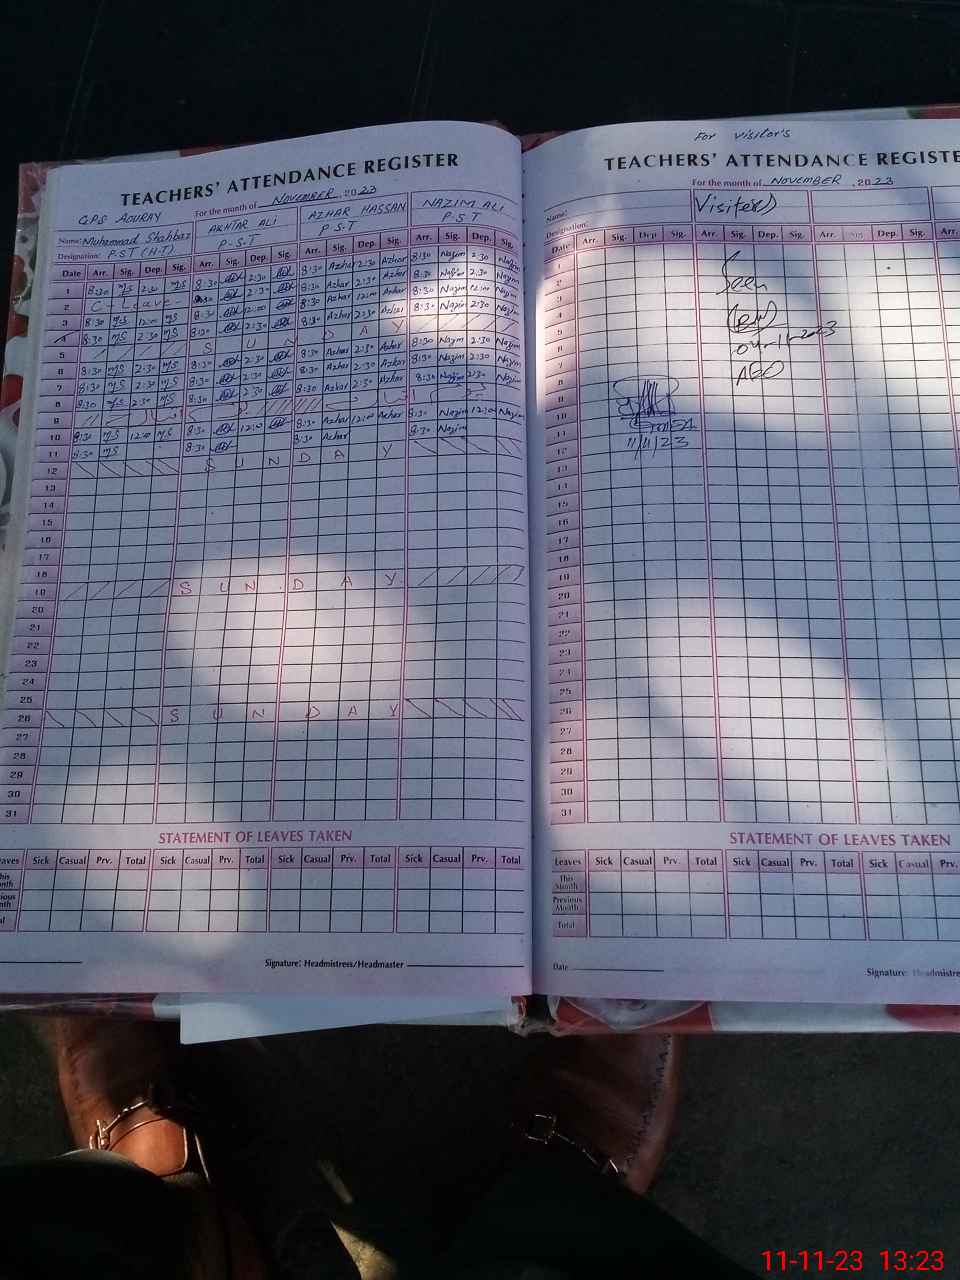 TEACHERS' ATTENDANCE REGISTER
For the month of NOVEMBER, 2023
GPS AOURAY
Name: Muhammad Shahbaz AKHTAR ALI AZHAR HASSAN NAZIM ALI
Designation: P.S.T (H.T) P.S.T P.S.T P.S.T
Date Arr. Sig. Dep. Sig. Arr. Sig. Dep. Sig. Arr. Sig. Dep. Sig. Arr. Sig. Dep. Sig.
1 8:30 MS 2:30 MS 8:30 2:30 8:30 Azhar 2:30 Azhar 8:30 Nazim 2:30 Nazim
2 C - Leave - 8:30 2:30 8:30 Azhar 2:30 Azhar 8:30 Nazim 2:30 Nazim
3 8:30 MS 12:00 MS 8:30 12:00 8:30 Azhar 12:00 Azhar 8:30 Nazim 12:00 Nazim
4 8:30 MS 2:30 MS 8:30 2:30 8:30 Azhar 2:30 Azhar 8:30 Nazim 2:30 Nazim
5 S U N D A Y
6 8:30 MS 2:30 MS 8:30 2:30 8:30 Azhar 2:30 Azhar 8:30 Nazim 2:30 Nazim
7 8:30 MS 2:30 MS 8:30 2:30 8:30 Azhar 2:30 Azhar 8:30 Nazim 2:30 Nazim
8 8:30 MS 2:30 MS 8:30 2:30 8:30 Azhar 2:30 Azhar 8:30 Nazim 2:30 Nazim
9
10 8:30 MS 12:00 MS 8:30 12:00 8:30 Azhar 12:00 Azhar 8:30 Nazim 12:00 Nazim
11 8:30 MS 8:30 8:30 Azhar 8:30 Nazim
12 S U N D A Y
13
14
15
16
17
18
19 S U N D A Y
20
21
22
23
24
25
26 S U N D A Y
27
28
29
30
31
STATEMENT OF LEAVES TAKEN
Leaves Sick Casual Prv. Total Sick Casual Prv. Total Sick Casual Prv. Total Sick Casual Prv. Total
Signature: Headmistress/Headmaster
For Visitor's
TEACHERS' ATTENDANCE REGISTE
For the month of NOVEMBER, 2023
Name: Visitors
Designation:
Date Arr. Sig. Dep. Sig. Arr. Sig. Dep. Sig. Arr. Sig. Dep. Sig. Arr.
1
2 Seen
3
4
5 04-11-2023
6
7 AEO
8
9
10
11 11/11/23
12
13
14
15
16
17
18
19
20
21
22
23
24
25
26
27
28
29
30
31
STATEMENT OF LEAVES TAKEN
Leaves Sick Casual Prv. Total Sick Casual Prv. Total Sick Casual Prv.
This Month
Previous Month
Total
Date
Signature: Headmistre
11-11-23 13:23